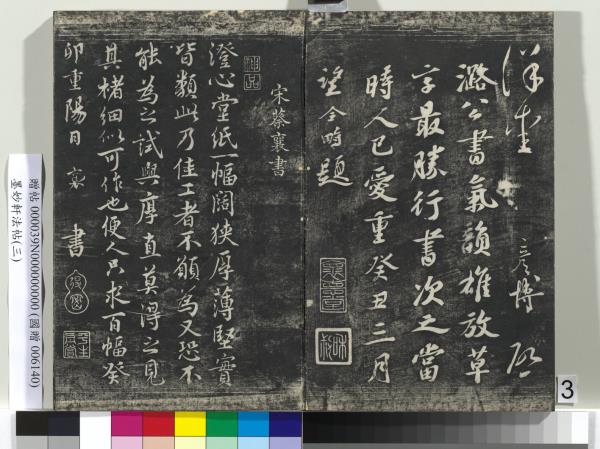 彥博 啟
潞公書氣韻雄放草
字最勝行書次之當
時人已愛重癸丑三月
望 題
宋蔡襄書
澄心堂紙一幅闊狹厚薄堅實
皆類此乃佳工者不願為又恐不
能為之試與厚直莫得之見
其楮細似可作也便人只求百幅癸
卯重陽日襄書
贈帖 (國贈 006140)
墨妙軒法帖(三)
3